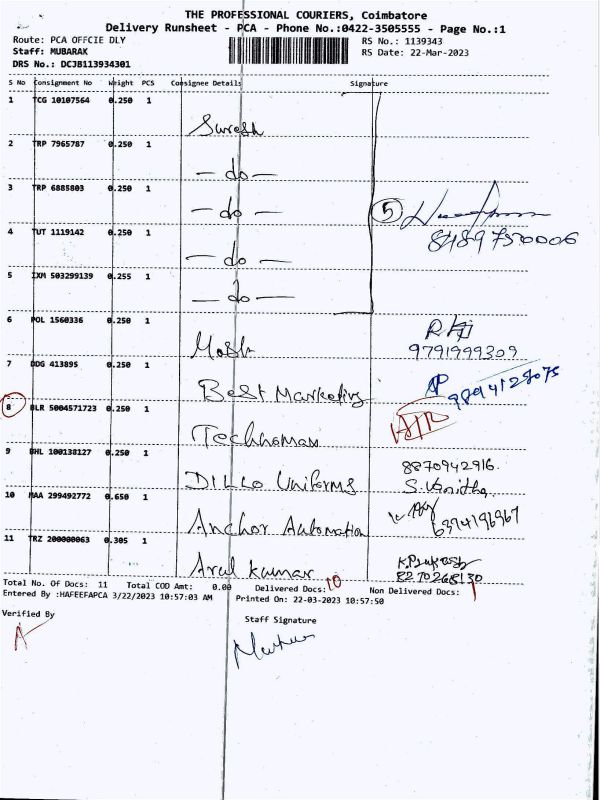 THE PROFESSIONAL COURIERS, Coimbatore
Delivery Runsheet - PCA - Phone No.:0422-3505555 - Page No.:1
Route: PCA OFFCIE DLY
RS No.: 1139343
Staff: MUBARAK
RS Date: 22-Mar-2023
DRS No.: DCJB113934301
S No Consignment No Weight PCS Consignee Details Signature
1 TCG 10107564 0.250 1
Suresh
2 TRP 7965787 0.250 1
- do -
3 TRP 6885803 0.250 1
- do -
5
4 TUT 1119142 0.250 1
8489750006
- do -
5 IXM 503299139 0.255 1
- do -
6 POL 1560336 0.250 1
9791999309
7 DDG 413895 0.250 1
Best Marketing
8 BLR 5004571723 0.250 1
Technomax
9 BHL 100138127 0.250 1
8870942916.
DILLO Uniforms S. Vanitha
10 MAA 299492772 0.650 1
Anchor Automation 6394196967
11 TRZ 200000063 0.305 1
Arul kumar
8270268130
Total No. Of Docs: 11 Total COD Amt: 0.00 Delivered Docs: 10 Non Delivered Docs: 1
Entered By :HAFEEFAPCA 3/22/2023 10:57:03 AM Printed On: 22-03-2023 10:57:50
Verified By
Staff Signature